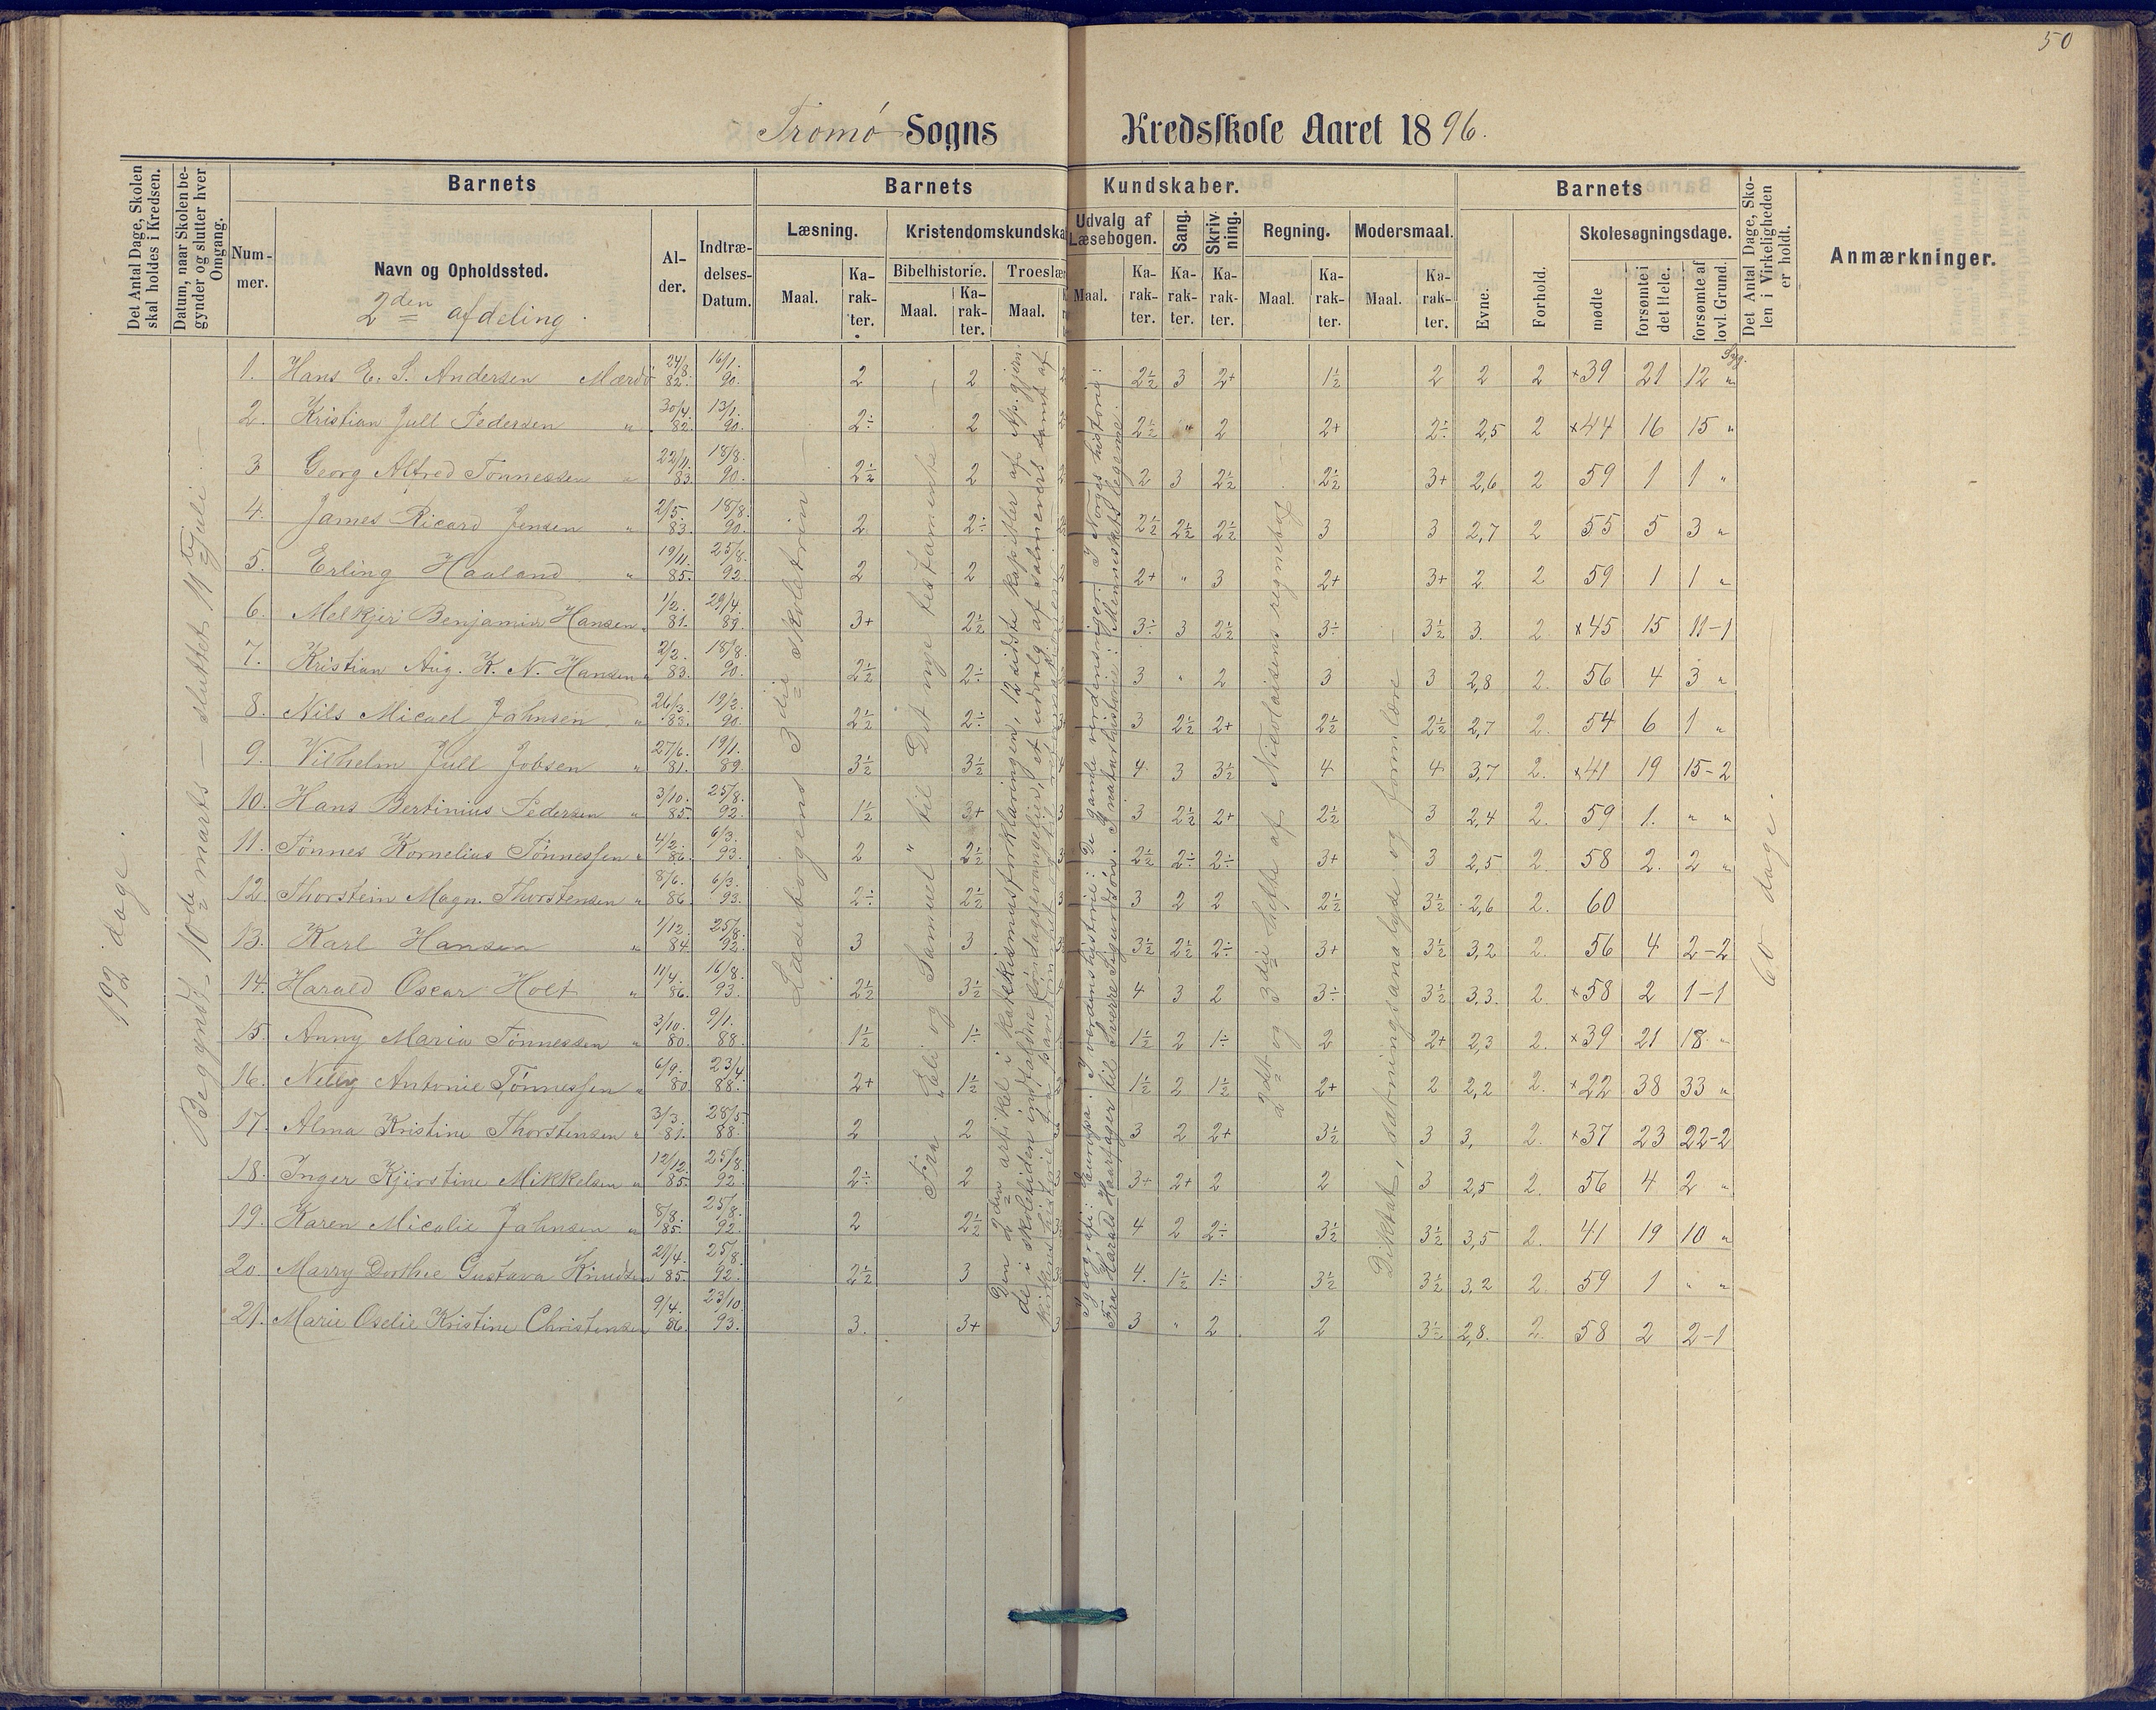 50
Tromø Sogns Kredsskole Aaret 1896.
Det Antal Dage, Skolen skal holdes i Kredsen.
Datum, naar Skolen begynder og slutter hver Omgang.
Barnets
Barnets Kundskaber.
Barnets
Det Antal Dage, Skolen i Virkeligheden er holdt.
Anmærkninger.
Nummer.
Navn og Opholdssted.
2den afdeling.
Alder.
Indtrædelses-Datum.
Læsning.
Kristendomskundska
Udvalg af Læsebogen.
Sang.
Skrivning.
Regning.
Modersmaal.
Evne.
Forhold.
Skolesøgningsdage.
Maal. Karakter.
Bibelhistorie. Maal. Karakter.
Troeslær Maal.
Maal. Karakter. Karakter. Karakter.
Maal. Karakter.
Maal. Karakter.
mødte
forsømte i det Hele.
forsømte af lovl. Grund.
Syg.
192 dage.
Begyndt 10de marts – sluttet 11te Juli. –
Læsebogens 3die skoletrin –
Fra "Eli og Samuel" til Det nye testamente –
Den 2den artikel i katekismusforklaringen, 12 sidste kapitler af Ap. gjern.
de i skoletiden indfaldne söndagsevangelier, et udvalg af salmevers samt af
I geografi: Europa. I verdenshistorie: De gamle nordensriger. I Norges historie:
Fra Harald Haarfager til Sverre Sigurdsön. I naturhistorie: Menneskets legeme.
2det og 3die hefte af Nicolaisens regnebog
Diktat, sætningsanalyse og formlære
60 dage.
1. Hans E. S. Andersen Mærdø 24/8. 82. 16/1. 90. 2 2 2½ 3 2+ 1½ 2 2 2 ×39 21 12 "
2. Kristian Jull Pedersen " 30/4. 82. 13/1. 90. 2÷ 2 2½ " 2 2+ 2÷ 2,5 2 ×44 16 15 "
3 Georg Alfred Tønnessen " 22/11. 83. 18/8. 90. 2½ 2 2 3 2½ 2½ 3+ 2,6 2 59 1 1 "
4. James Ricard Jensen " 2/5. 83. 18/8. 90. 2 2÷ 2½ 2½ 2½ 3 3 2,7 2 55 5 3 "
5. Erling Haaland " 19/11. 85. 25/8. 92. 2 2 2+ " 3 2+ 3+ 2 2 59 1 1 "
6. Melkjer Benjamin Hansen " 1/2. 81. 29/4. 89. 3+ 2½ 3÷ 3 2½ 3÷ 3½ 3. 2 ×45 15 11-1
7. Kristian Aug. K. N. Hansen " 2/2. 83. 18/8. 90. 2½ 2÷ 3 " 2 3 3 2,8 2. 56 4 3 "
8. Nils Micael Jahnsen " 26/3. 83. 19/2. 90. 2½ 2÷ 3 2½ 2+ 2½ 2½ 2,7 2. 54 6 1 "
9. Vilhelm Jull Jobsen " 27/6. 81. 19/1. 89. 3½ 3½ 4. 3 3½ 4 4 3,7 2. ×41 19 15-2
10. Hans Bertinius Pedersen " 3/10. 85. 25/8. 92. 1½ 3+ 3 2½ 2+ 2½ 3 2,4 2. 59 1. " "
11. Tønnes Kornelius Tønnessen " 4/2. 86. 6/3. 93. 2 2½ 2½ 2÷ 2÷ 3+ 3 2,5 2. 58 2. 2 "
12. Thorstein Magn. Thorstensen " 8/6. 86. 6/3. 93. 2÷ 2½ 3 2 2 2½ 3½ 2,6 2. 60
13. Karl Hansen " 1/12. 84. 25/8. 92. 3 3 3½ 2½ 2÷ 3+ 3½ 3,2 2. 56 4 2-2
14. Harald Oscar Holt " 11/4. 86. 16/8. 93. 2½ 3½ 4 3 2 3÷ 3½ 3,3. 2. ×58 2 1-1
15. Anny Maria Tønnessen " 3/10. 80. 9/1. 88. 1½ 1÷ 1½ 2 1÷ 2 2+ 2,3 2. ×39 21 18 "
16. Nelly Antonie Tønnessen " 6/9. 80 23/4. 88. 2+ 1½ 1½ 2 1½ 2+ 2 2,2 2. ×22 38 33 "
17. Alma Kristine Thorstensen " 3/3. 81. 28/5. 88. 2 2 3 2 2+ 3½ 3 3, 2. ×37 23 22-2
18. Inger Kjirstine Mikkelsen " 12/12. 85. 25/8. 92. 2÷ 2 3+ 2+ 2 2 3 2,5 2. 56 4 2 "
19. Karen Micalie Jahnsen " 8/8. 85. 25/8. 92. 2 2½ 4 2 2÷ 3½ 3½ 3,5 2. 41 19 10 "
20. Marry Dorthie Gustava Knudsen 21/4. 85. 25/8. 92. 2½ 3 4. 1½ 1÷ 3½ 3½ 3,2 2. 59 1 " "
21. Marie Oselie Kristine Christensen 9/4. 86. 23/10. 93. 3. 3+ 3 " 2 2 3½ 2,8. 2. 58 2 2-1